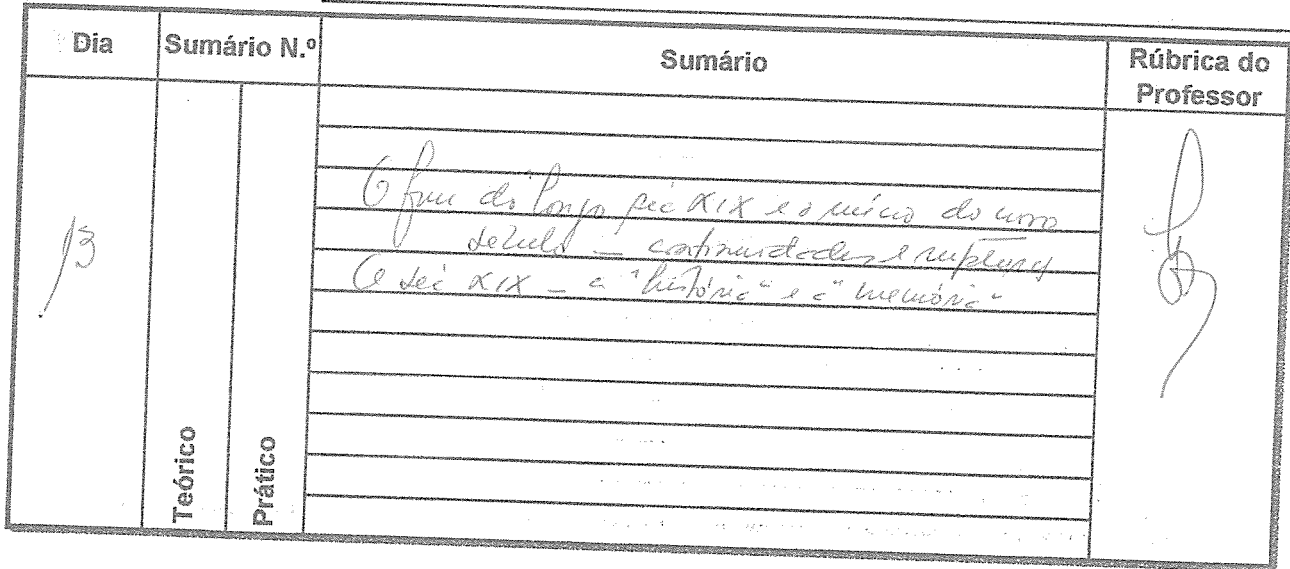 Dia Sumário N.º Sumário Rúbrica do Professor
Teórico Prático
13
O fim do longo séc XIX e o início do novo
século – continuidades e rupturas
O séc XIX – a "história" e a "memória"